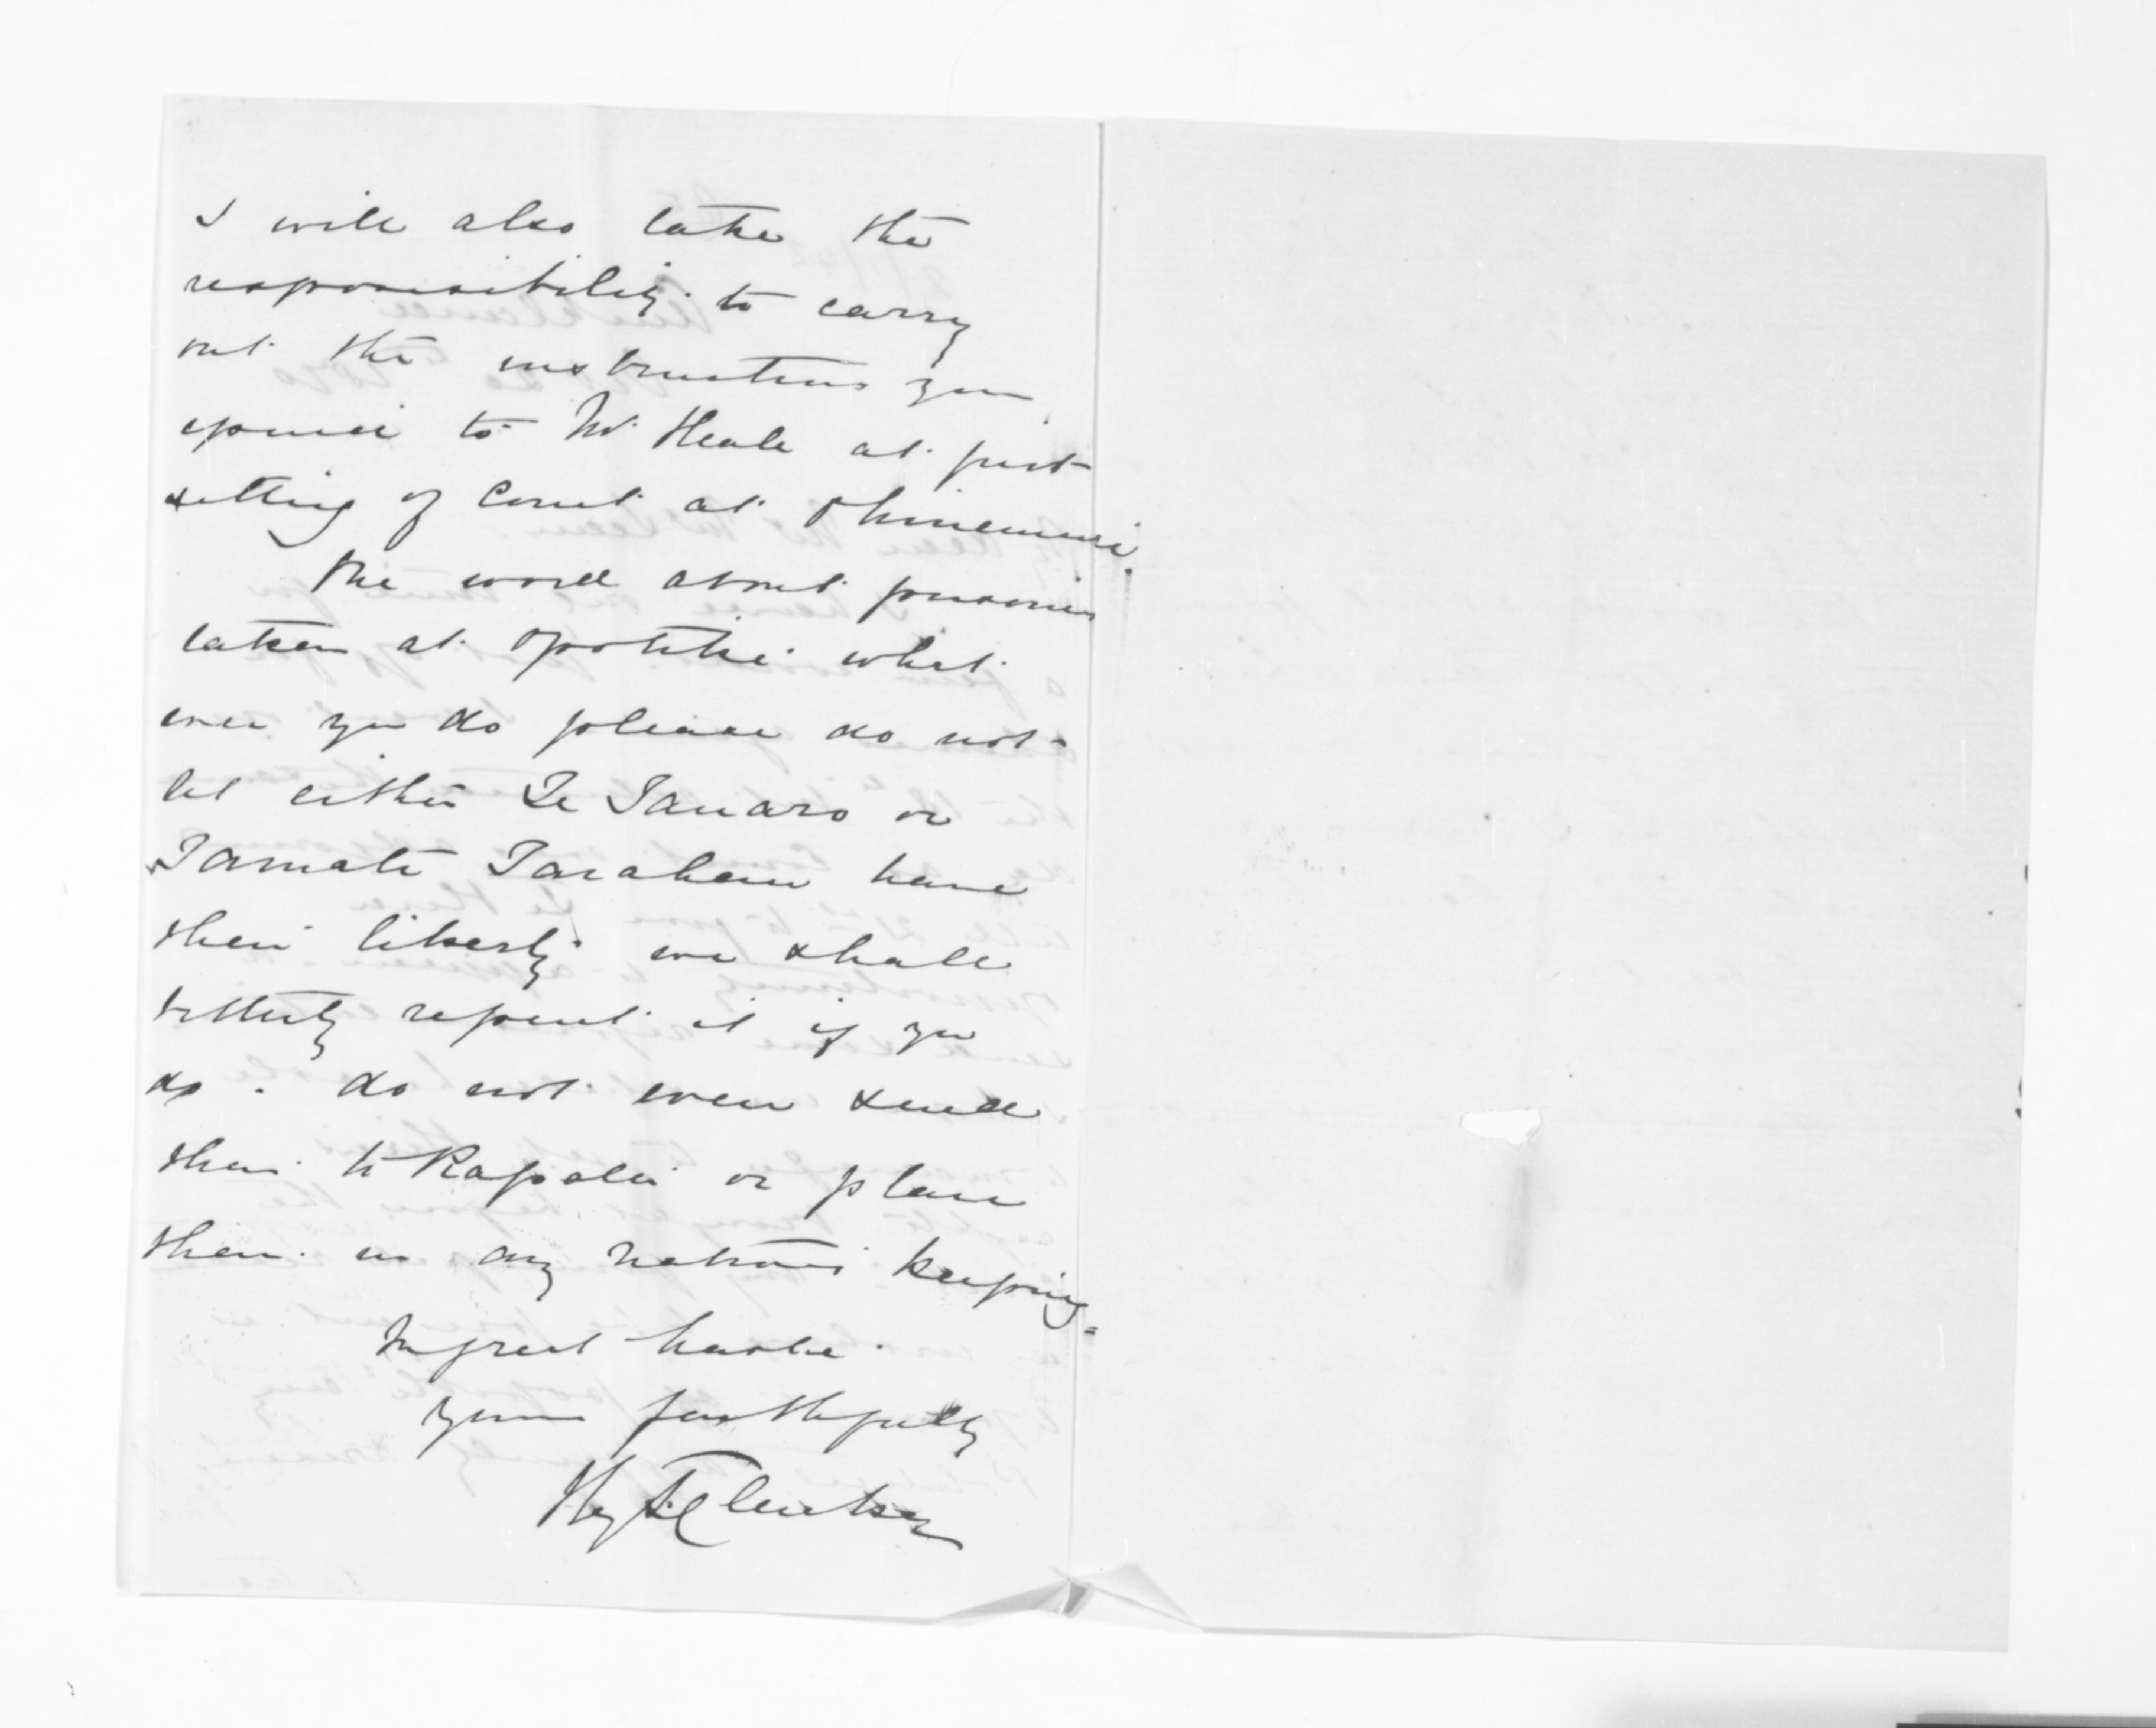 I will also take the
responsibility to carry
out the instructions you
gave to Mr Heale at first
sitting of Court at Ohinemuri.
One word about prisoners
taken at Opotiki what
ever you do please do not
let either Te Tanaro or
Tamati Tarahau have
their liberty we shall
bitterly repent it if you
do. do not even send
them to Rapalii or place
them in any natives keeping.
In great haste.
yours faithfully
Hy T. Clarke